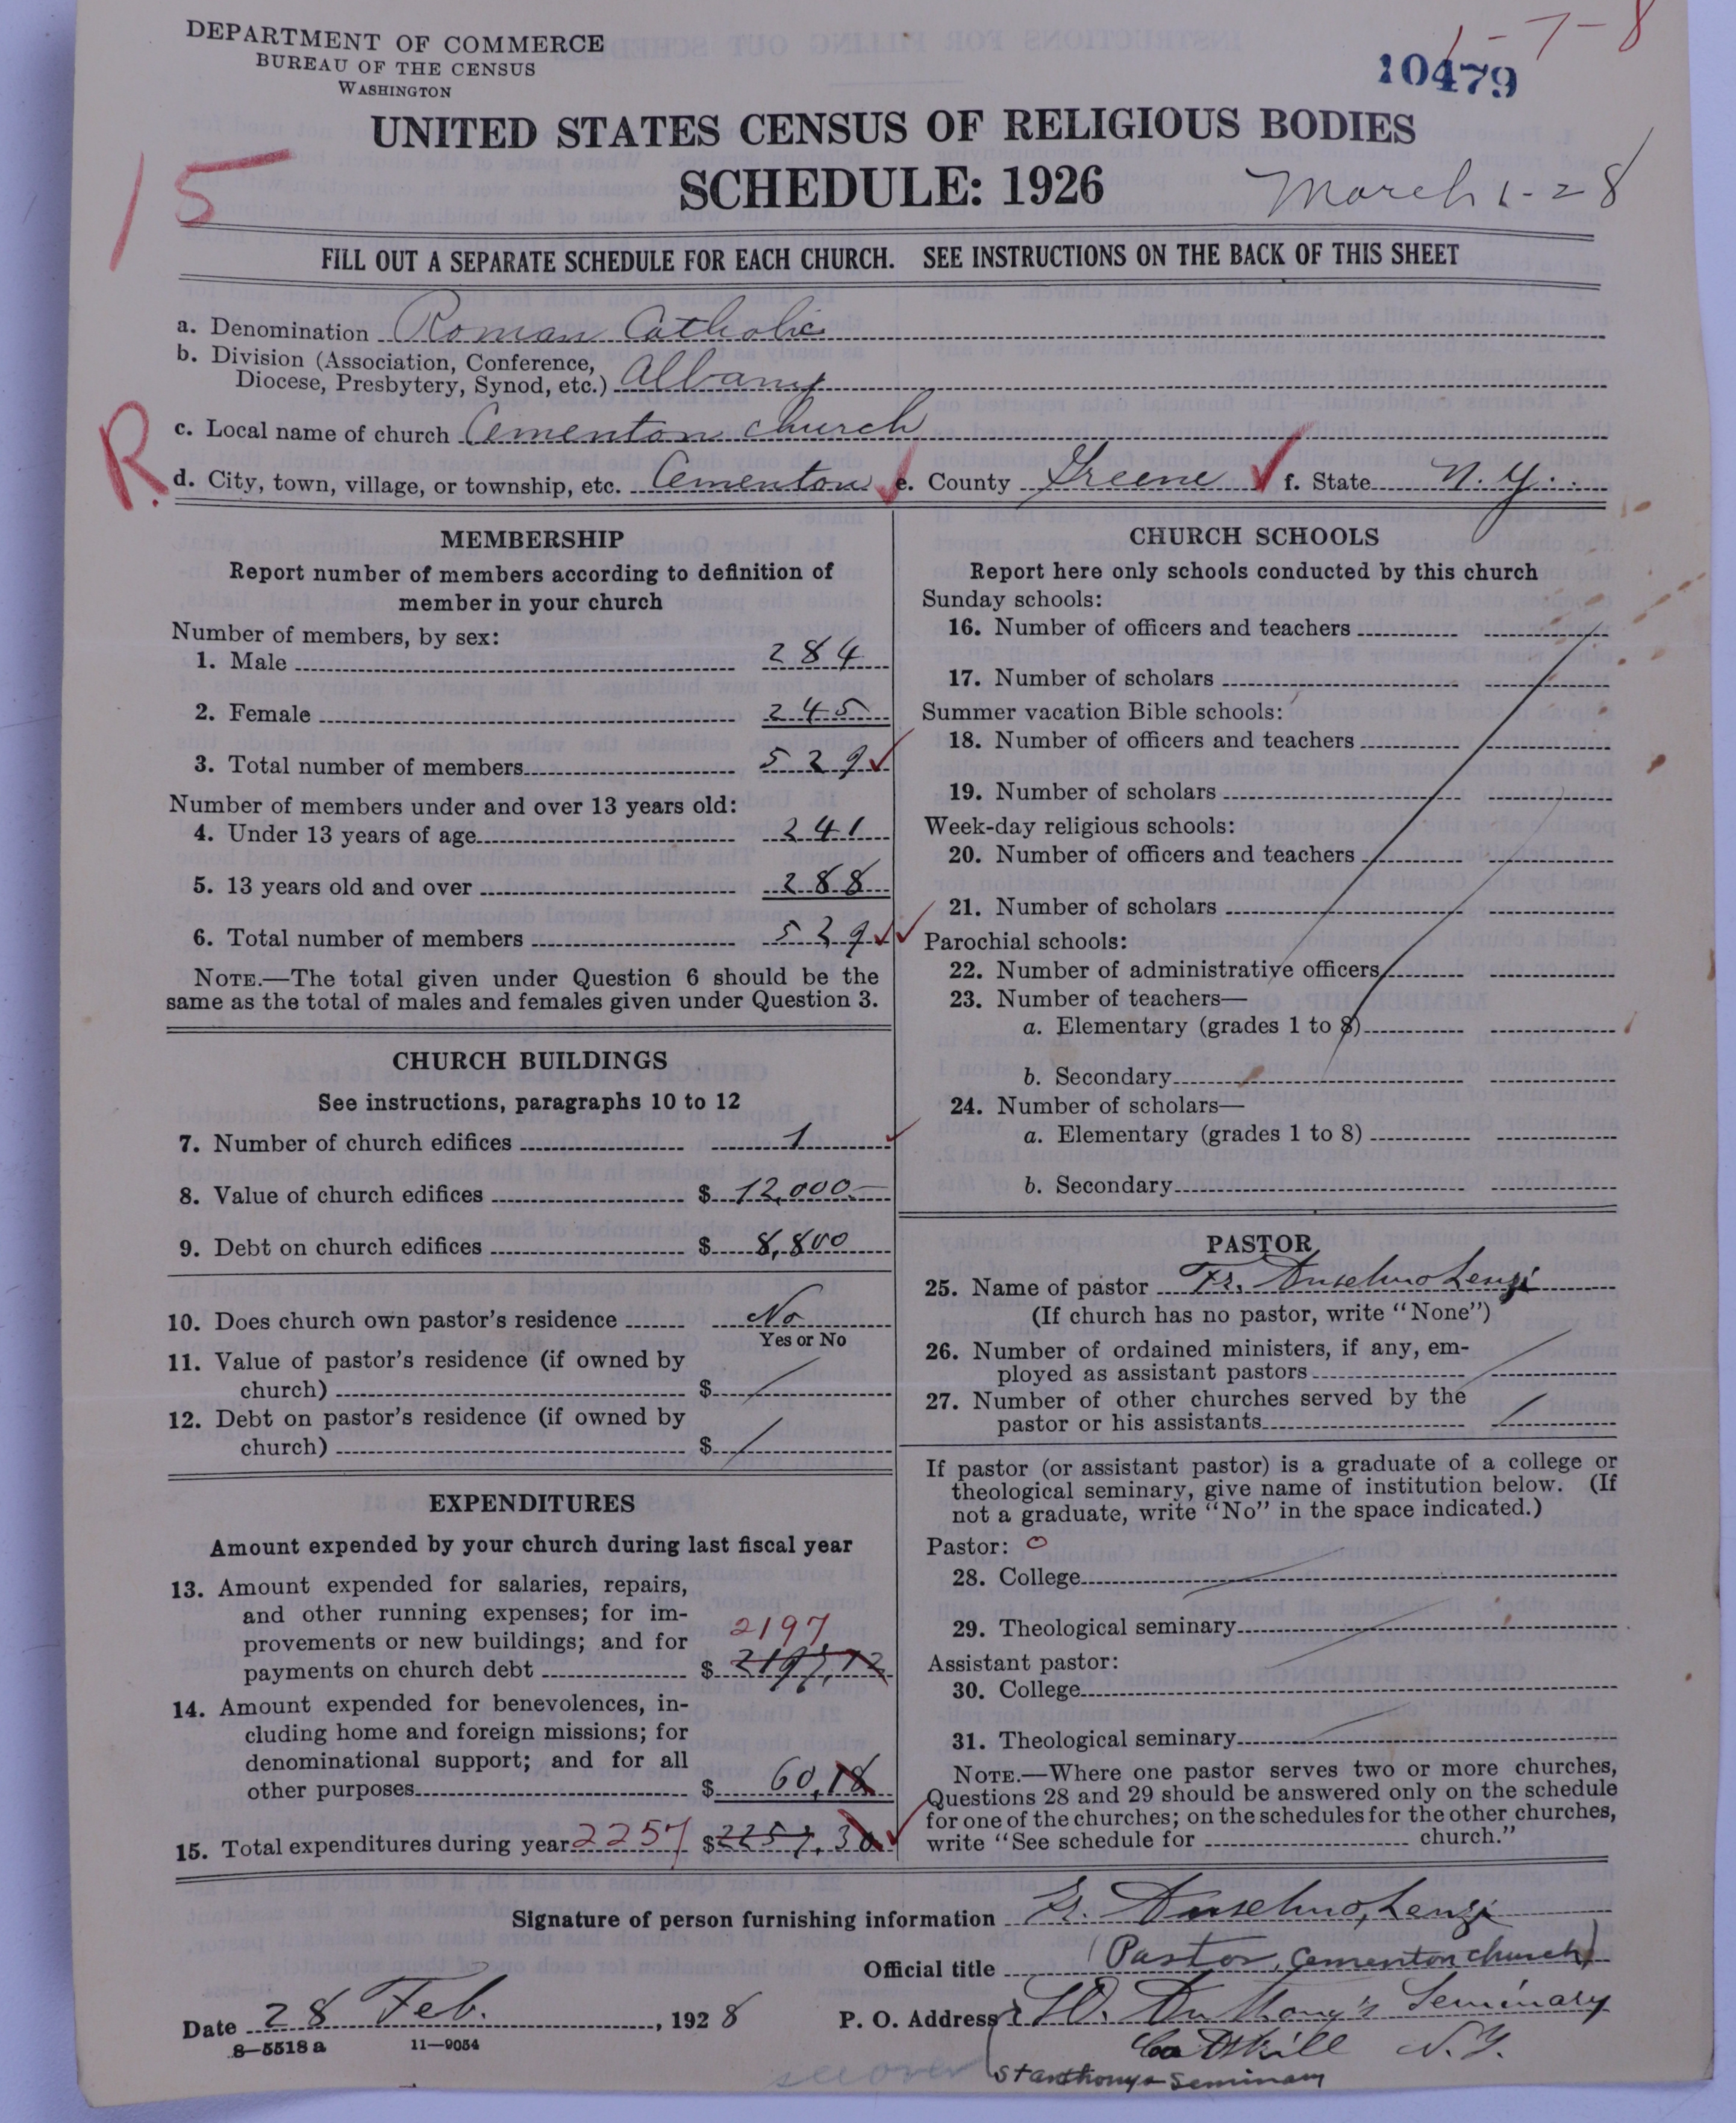 1-7-8
DEPARTMENT OF COMMERCE
BUREAU OF THE CENSUS
WASHINGTON
10479
UNITED STATES CENSUS OF RELIGIOUS BODIES
SCHEDULE: 1926
March 1-28
15
FILL OUT A SEPARATE SCHEDULE FOR EACH CHURCH. SEE INSTRUCTIONS ON THE BACK OF THIS SHEET
a. Denomination Roman Catholic
b. Division (Association, Conference, Diocese, Presbytery, Synod, etc.) Albany
c. Local name of church Cementon church
R.
d. City, town, village, or township, etc. Cementon e. County Greene f. State N.Y.
MEMBERSHIP
Report number of members according to definition of
member in your church
Number of members, by sex:
1. Male 284
2. Female 245
3. Total number of members 529
Number of members under and over 13 years old:
4. Under 13 years of age 241
5. 13 years old and over 288
6. Total number of members 529
NOTE.—The total given under Question 6 should be the
same as the total of males and females given under Question 3.
CHURCH BUILDINGS
See instructions, paragraphs 10 to 12
7. Number of church edifices 1
8. Value of church edifices $ 12,000.—
9. Debt on church edifices $ 8,800
10. Does church own pastor's residence No
Yes or No
11. Value of pastor's residence (if owned by
church) $
12. Debt on pastor's residence (if owned by
church) $
EXPENDITURES
Amount expended by your church during last fiscal year
13. Amount expended for salaries, repairs,
and other running expenses; for im-
provements or new buildings; and for 2197
payments on church debt $ 2197,12
14. Amount expended for benevolences, in-
cluding home and foreign missions; for
denominational support; and for all
other purposes $ 60,18
15. Total expenditures during year 2257 $ 2257.30
CHURCH SCHOOLS
Report here only schools conducted by this church
Sunday schools:
16. Number of officers and teachers
17. Number of scholars
Summer vacation Bible schools:
18. Number of officers and teachers
19. Number of scholars
Week-day religious schools:
20. Number of officers and teachers
21. Number of scholars
Parochial schools:
22. Number of administrative officers
23. Number of teachers—
a. Elementary (grades 1 to 8)
b. Secondary
24. Number of scholars—
a. Elementary (grades 1 to 8)
b. Secondary
PASTOR
25. Name of pastor Fr. Anselmo Lenzi
(If church has no pastor, write "None")
26. Number of ordained ministers, if any, em-
ployed as assistant pastors
27. Number of other churches served by the
pastor or his assistants
If pastor (or assistant pastor) is a graduate of a college or
theological seminary, give name of institution below. (If
not a graduate, write "No" in the space indicated.)
Pastor: 0
28. College
29. Theological seminary
Assistant pastor:
30. College
31. Theological seminary
NOTE.—Where one pastor serves two or more churches,
Questions 28 and 29 should be answered only on the schedule
for one of the churches; on the schedules for the other churches,
write "See schedule for church."
Signature of person furnishing information Fr. Anselmo, Lenzi
Official title (Pastor, Cementon church)
Date 28 Feb. , 1928 P. O. Address Anthony's Seminary
8-5518 a 11-9054
Catskill N.Y.
see over
St Anthonys Seminary